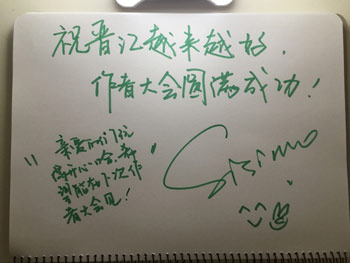 祝晋江越来越好，
作者大会圆满成功！
"亲爱的们玩
得开心哈，希
望能在下次作
者大会见！"